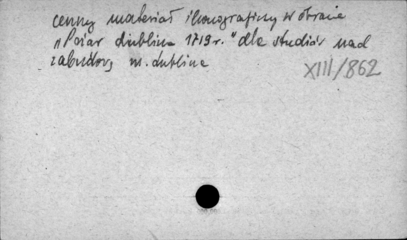 cenny materiał ikonograficzny w obrazie
"Pożar Lublina 1719 r." dla studiów nad
zabudową m. Lublina
XIII/862